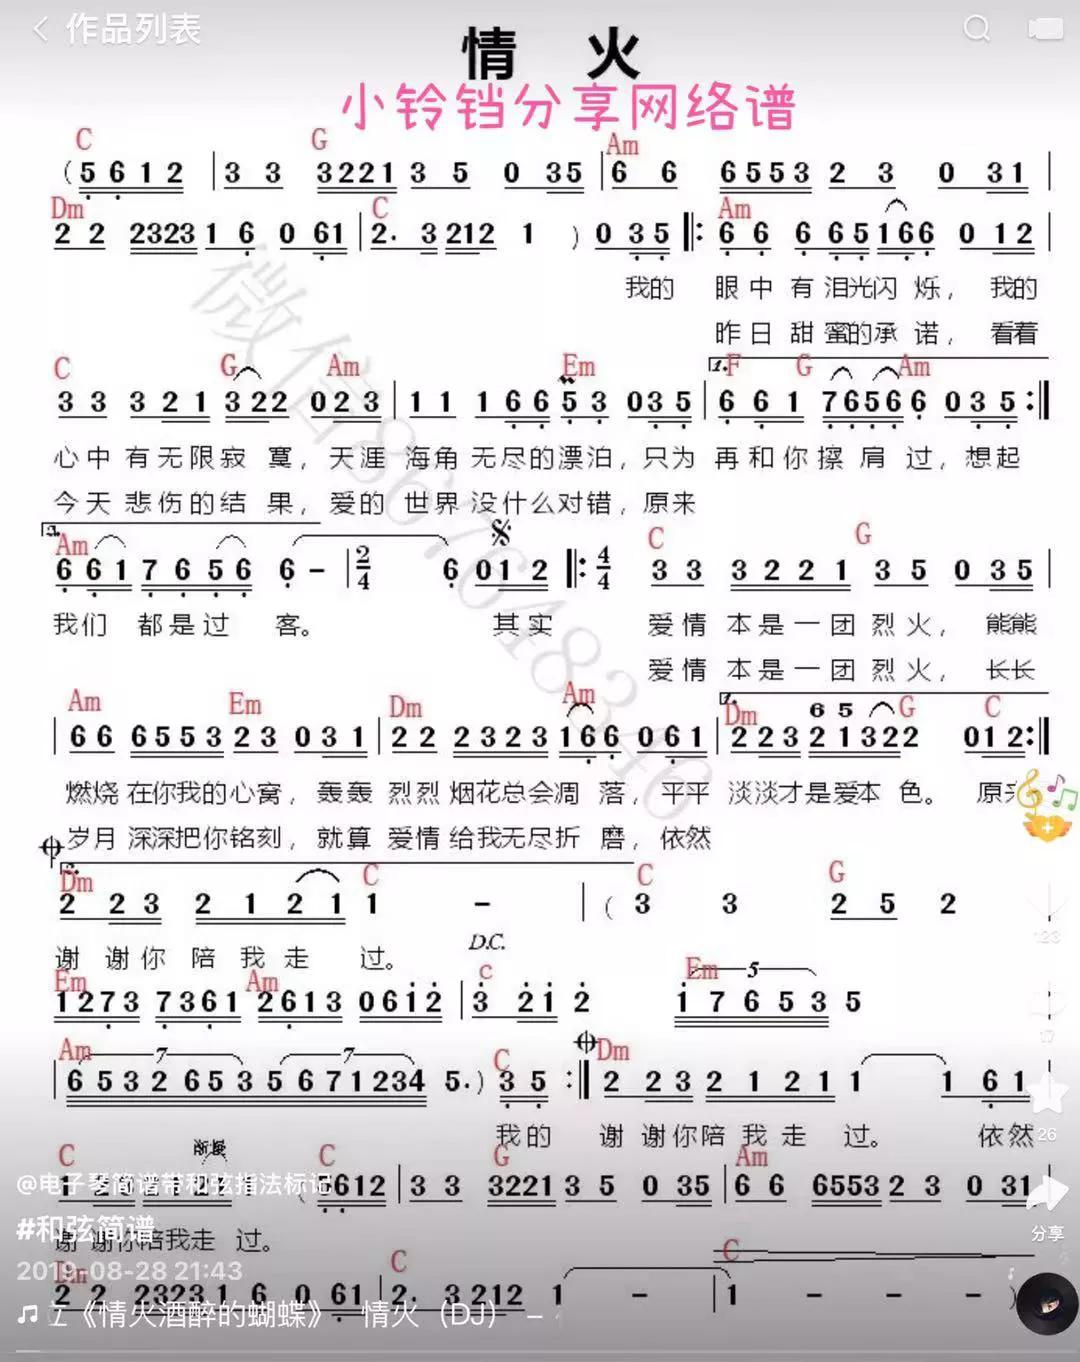 作品列表
情 火
小铃铛分享网络谱
C G Am
( 5 6 1 2 | 3 3 3221 3 5 0 35 | 6 6 6553 2 3 0 31 |
Dm C Am
2 2 2323 1 6 0 61 | 2. 3 212 1 ) 0 35 ‖: 6 6 6 65 166 0 12 |
我的 眼中有泪光闪 烁， 我的
昨日甜蜜的承 诺， 看着
C G Am Em 1. F G Am
3 3 3 21 322 023 | 1 1 1 66 53 035 | 6 61 76566 035 :‖
心中有无限寂 寞，天涯 海角无尽的漂泊，只为 再和你擦 肩 过，想起
今天悲伤的结 果，爱的 世界没什么对错，原来
2. Am C G
6 61 7 6 56 6 – | 2/4 6 012 ‖: 4/4 3 3 3221 3 5 0 35 |
我们 都是过 客。 其实 爱情 本是一团 烈火， 熊熊
爱情 本是一团 烈火， 长长
Am Em Dm Am 1. Dm 65 G C
| 66 6553 23 031 | 22 2323 166 061 | 223 213222 012 :‖
燃烧在你我的心窝，轰轰 烈烈烟花总会凋 落，平平 淡淡才是爱本 色。
岁月深深把你铭刻，就算 爱情给我无尽折 磨，依然
2. Dm C C G
2 23 2 1 21 1 – | ( 3 3 2 5 2
谢 谢你 陪 我 走 过。 D.C.
Em Am C Em
1273 7361 2613 0612 | 3 21 2 5 17653 5
Am 7 7 C Dm
| 6532653 5671234 5.) 35 :‖ 2 23 2 1 21 1 1 61
我的 谢 谢你陪 我 走 过。 依然
C 渐慢 C G Am
612 | 3 3 3221 3 5 0 35 | 6 6 6553 2 3 0 31
@电子琴简谱带和弦指法标记
#和弦简谱
谢 谢你陪我走 过。
2019-08-28 21:43
Dm C C
2 2 2323 1 6 0 61 | 2. 3 212 1 – | 1 – – – )
《情火酒醉的蝴蝶》 情火（DJ）–
微信867648346
123
17
26
分享